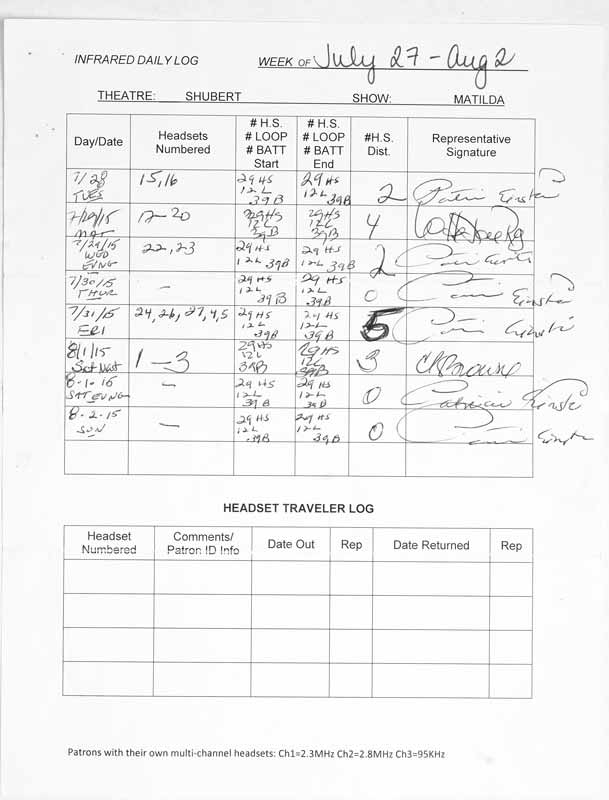 INFRARED DAILY LOG WEEK OF July 27 - Aug 2
THEATRE: SHUBERT SHOW: MATILDA
Day/Date Headsets Numbered # H.S. # LOOP # BATT Start # H.S. # LOOP # BATT End #H.S. Dist. Representative Signature
7/28 TUES 15,16 29 HS 12 L 39 B 29 HS 12 L 39 B 2
7/29/15 MAT 17-20 29 HS 12 L 39 B 29 HS 12 L 39 B 4
7/29/15 WED EVNG 22,23 29 HS 12 L 39 B 29 HS 12 L 39 B 2
7/30/15 THUR - 29 HS 12 L 39 B 29 HS 12 L 39 B 0
7/31/15 FRI 24, 26, 27, 4, 5 29 HS 12 L 39 B 29 HS 12 L 39 B 5
8/1/15 Sat Mat 1-3 29 HS 12 L 39 B 29 HS 12 L 39 B 3
8-1-15 SAT EVNG - 29 HS 12 L 39 B 29 HS 12 L 39 B 0
8-2-15 SUN - 29 HS 12 L 39 B 29 HS 12 L 39 B 0
HEADSET TRAVELER LOG
Headset Numbered Comments/ Patron ID Info Date Out Rep Date Returned Rep
Patrons with their own multi-channel headsets: Ch1=2.3MHz Ch2=2.8MHz Ch3=95KHz